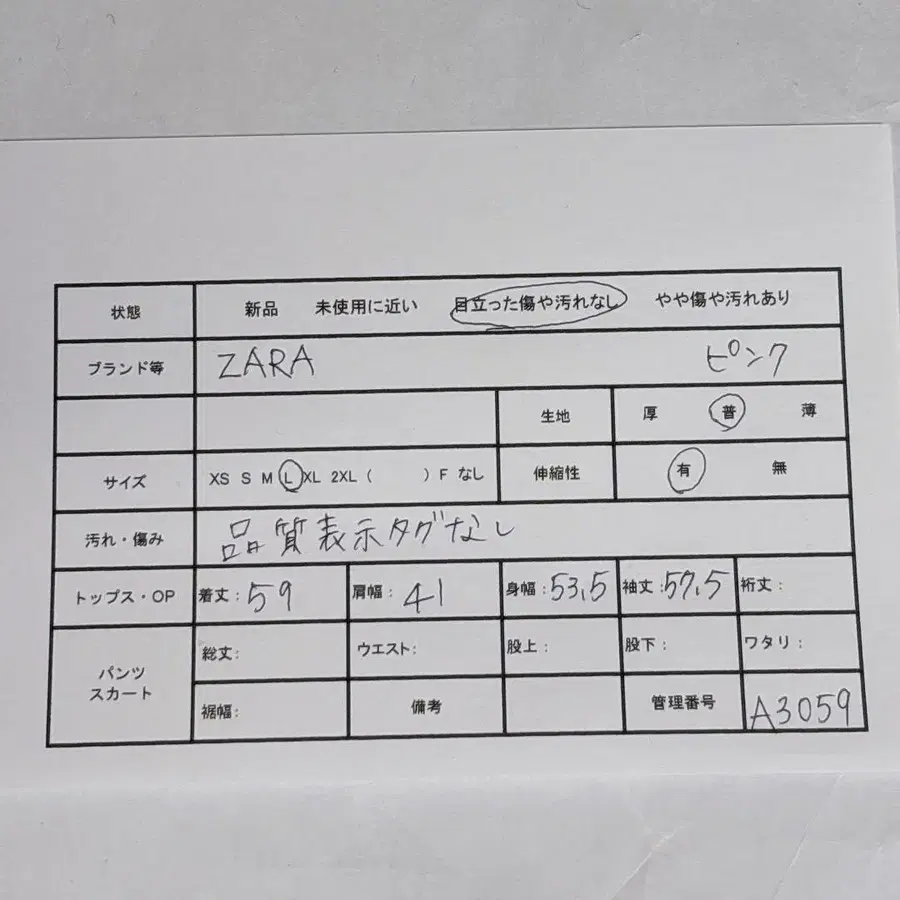 状態 新品 未使用に近い 目立った傷や汚れなし やや傷や汚れあり
ブランド等 ZARA ピンク
生地 厚 普 薄
サイズ XS S M L XL 2XL ( ) F なし 伸縮性 有 無
汚れ・傷み 品質表示タグなし
トップス・OP 着丈:59 肩幅:41 身幅:53.5 袖丈:57.5 裄丈:
パンツ スカート 総丈: ウエスト: 股上: 股下: ワタリ:
裾幅: 備考 管理番号 A3059